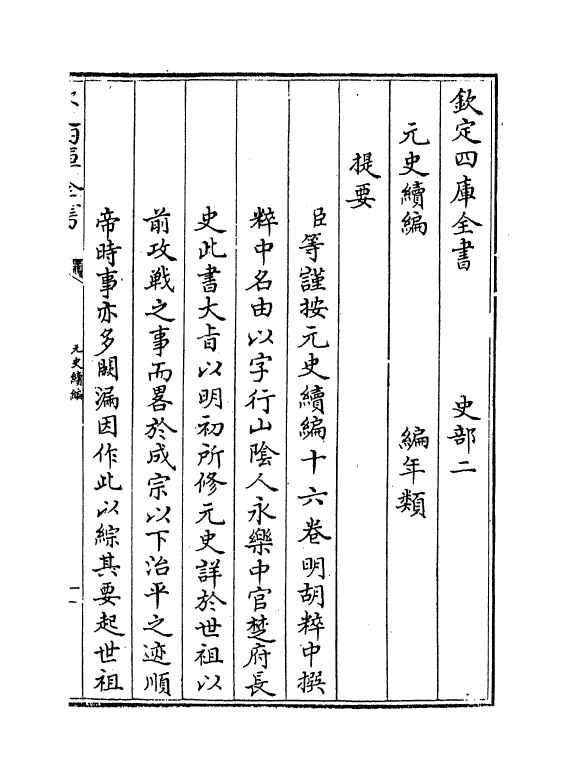 欽定四庫全書　史部二
元史續編　編年類
提要
臣等謹按元史續編十六卷明胡粹中撰
粹中名由以字行山陰人永樂中官楚府長
史此書大旨以明初所修元史詳於世祖以
前攻戰之事而畧於成宗以下治平之迹順
帝時事亦多闕漏因作此以綜其要起世祖
元史續編
一